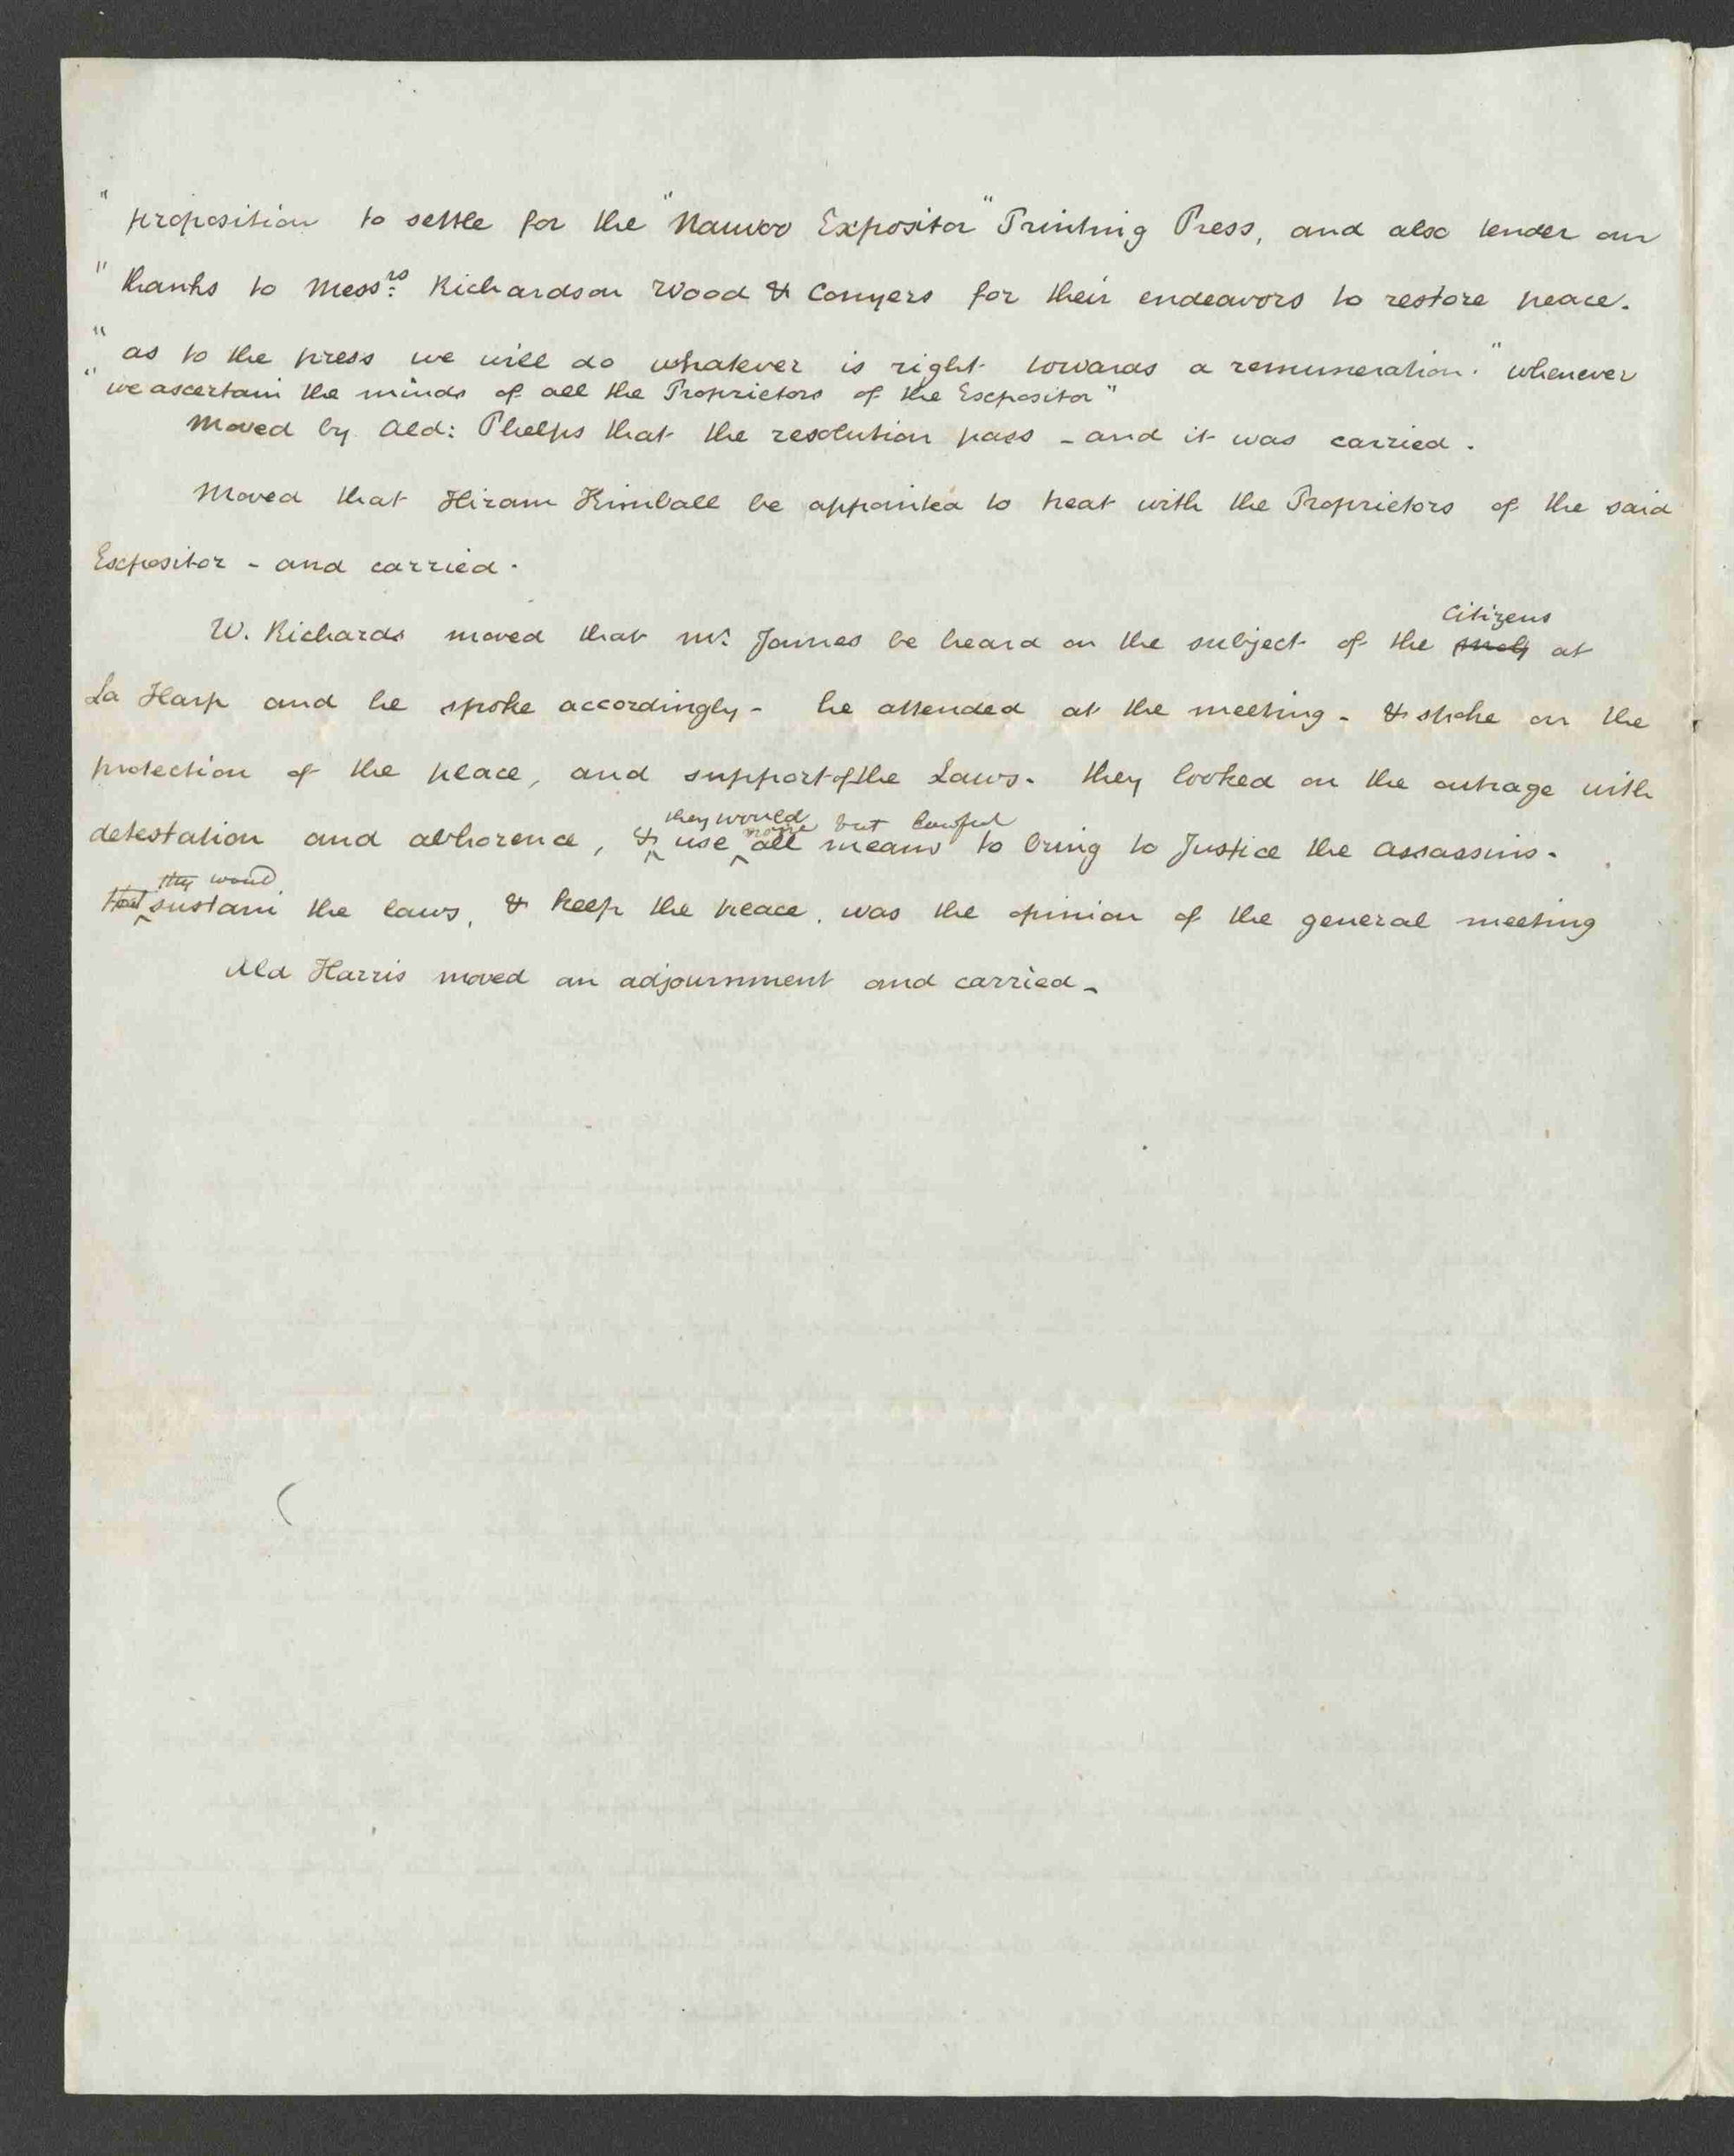 " proposition to settle for the "Nauvoo Expositor" Printing Press, and also tender our
" thanks to Mess.rs Richardson Wood & Conyers for their endeavors to restore peace.
" as to the press we will do whatever is right towards a remuneration." whenever
" we ascertain the minds of all the Proprietors of the Expositor"
Moved by Ald: Phelps that the resolution pass - and it was carried.
Moved that Hiram Kimball be appointed to treat with the Proprietors of the said
Expositor - and carried.
Citizens
W. Richards moved that Mr. James be heard on the subject of the at
La Harp and he spoke accordingly - he attended at the meeting - & spoke on the
protection of the place, and support of the Laws. they looked on the outrage with
they would none but lawful
detestation and abhorence, & use all means to bring to Justice the assassins.
they would
sustain the laws, & keep the peace, was the opinion of the general meeting
Ald Harris moved an adjournment and carried -